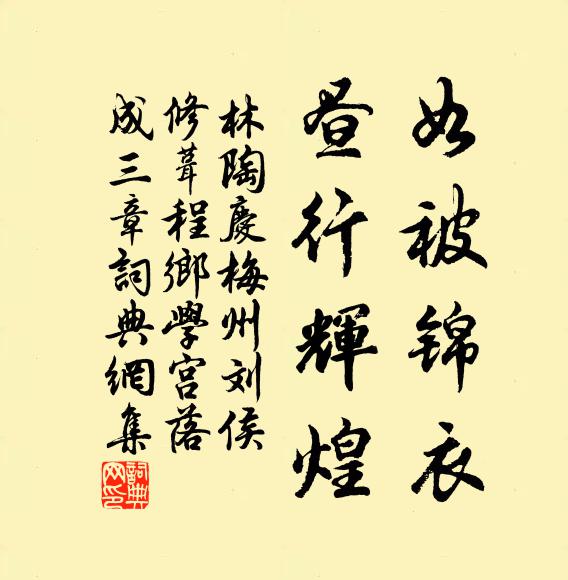 如被锦衣
昼行輝煌
林陶慶梅州刘侯
修葺程鄉學宫落
成三章詞典網集
詞典网印